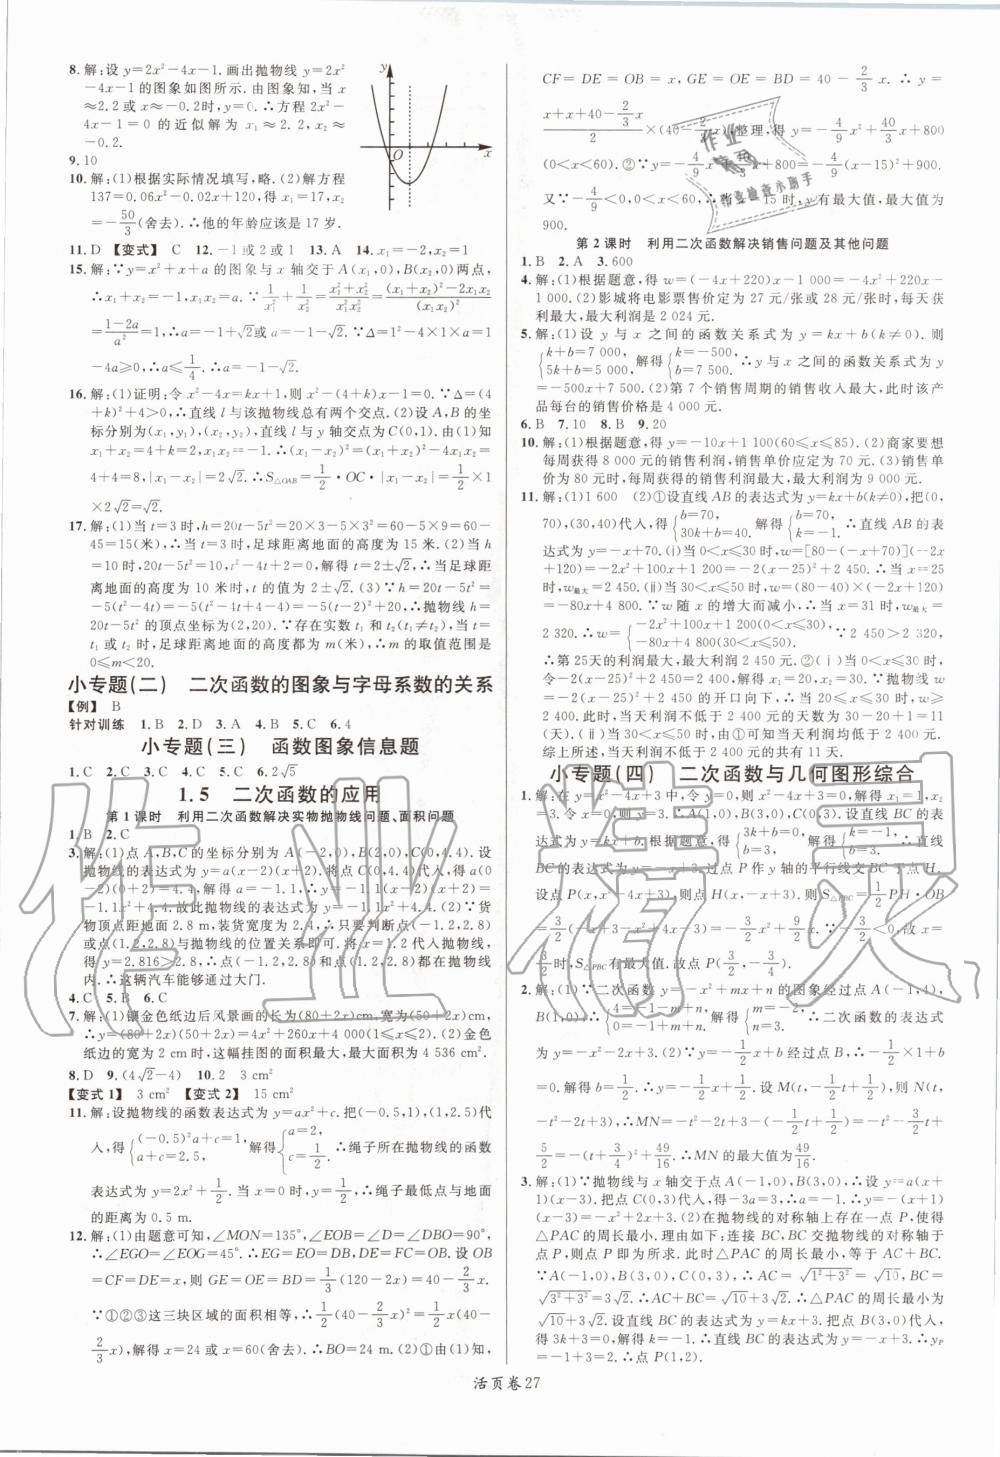 8. 解:设 y=2x²-4x-1. 画出抛物线 y=2x²
-4x-1 的图象如图所示. 由图象知,当 x
≈2.2 或 x≈-0.2时,y=0. ∴方程 2x²
-4x-1=0 的近似解为 x₁≈2.2,x₂≈
-0.2.
9. 10
10. 解:(1)根据实际情况填写,略. (2)解方程
137=0.06x²-0.02x+120,得 x₁=17,x₂
=-50/3(舍去). ∴他的年龄应该是 17 岁.
y
O
x
11. D 【变式】 C 12. -1 或 2 或 1 13. A 14. x₁=-2,x₂=1
15. 解:∵y=x²+x+a 的图象与 x 轴交于 A(x₁,0),B(x₂,0)两点,
∴x₁+x₂=-1,x₁x₂=a. ∵1/x₁²+1/x₂²=(x₁²+x₂²)/(x₁²x₂²)=((x₁+x₂)²-2x₁x₂)/(x₁x₂)²
=(1-2a)/a²=1,∴a=-1+√2或 a=-1-√2. ∵Δ=1²-4×1×a=1
-4a≥0,∴a≤1/4. ∴a=-1-√2.
16. 解:(1)证明:令 x²-4x=kx+1,则 x²-(4+k)x-1=0. ∵Δ=(4
+k)²+4>0,∴直线 l 与该抛物线总有两个交点. (2)设 A,B 的坐
标分别为(x₁,y₁),(x₂,y₂),直线 l 与 y 轴交点为 C(0,1). 由(1)知
x₁+x₂=4+k=2,x₁x₂=-1. ∴(x₁-x₂)²=(x₁+x₂)²-4x₁x₂=
4+4=8,|x₁-x₂|=2√2. S△OAB=1/2·OC·|x₁-x₂|=1/2×
1×2√2=√2.
17. 解:(1)当 t=3 时,h=20t-5t²=20×3-5×9=60-
45=15(米),∴当 t=3时,足球距离地面的高度为 15 米. (2)当 h
=10时,20t-5t²=10,t²-4t+2=0. 解得 t=2±√2. ∴当足球距
离地面的高度为 10 米时,t 的值为 2±√2. (3)∵h=20t-5t²=
-5(t²-4t)=-5(t²-4t+4-4)=-5(t-2)²+20,∴抛物线 h=
20t-5t²的顶点坐标为(2,20). ∵存在实数 t₁和 t₂(t₁≠t₂),当 t=
t₁ 或 t₂ 时,足球距离地面的高度都为 m(米),∴m 的取值范围是
0≤m<20.
小专题(二) 二次函数的图象与字母系数的关系
【例】 B
针对训练 1. B 2. D 3. A 4. B 5. C 6. 4
小专题(三) 函数图象信息题
1. C 2. C 3. C 4. C 5. C 6. 2√5
1.5 二次函数的应用
第 1 课时 利用二次函数解决实物抛物线问题、面积问题
1. B 2. C
3. 解:(1)点 A,B,C 的坐标分别为 A(-2,0),B(2,0),C(0,4.4). 设
抛物线的表达式为 y=a(x-2)(x+2). 将点 C(0,4.4)代入,得 a(0
-2)(0+2)=4.4,解得 a=-1.1. ∴y=-1.1(x-2)(x+2)=
-1.1x²+4.4. 故此抛物线的表达式为 y=-1.1x²+4.4. (2)∵货
物顶点距地面 2.8 m,装货宽度为 2.4,∴只要判断点(-1.2,2.8)
或点(1.2,2.8)与抛物线的位置关系即可. 将 x=1.2 代入抛物线,
得 y=2.816>2.8. ∴点(-1.2,2.8)和点(1.2,2.8)都在抛物线
内. ∴这辆汽车能够通过大门.
4. C 5. B 6. C
7. 解:(1)镶金色纸边后风景画的长为(80+2x)cm,宽为(50+2x)cm.
∴y=(80+2x)(50+2x)=4x²+260x+4 000(1≤x≤2). (2)金色
纸边的宽为 2 cm时,这幅挂图的面积最大,最大面积为 4 536 cm².
8. D 9. (4√2-4) 10. 2 3 cm²
【变式 1】 3 cm² 【变式 2】 15 cm²
11. 解:设抛物线的函数表达式为 y=ax²+c. 把(-0.5,1),(1,2.5)代
入,得{(-0.5)²a+c=1, a+c=2.5. 解得{a=2, c=1/2. ∴绳子所在抛物线的函数
表达式为 y=2x²+1/2. 当 x=0 时,y=1/2,∴绳子最低点与地面
的距离为 0.5 m.
12. 解:(1)由题意可知,∠MON=135°,∠EOB=∠D=∠DBO=90°.
∴∠EGO=∠EOG=45°. ∴EG=EO=DB,DE=FC=OB. 设 OB
=CF=DE=x,则 GE=OE=BD=1/3(120-2x)=40-2/3x.
∵①②③这三块区域的面积相等,∴1/2(40-2/3x)²=1/2(40-
2/3x),解得 x₁=24,x₂=60(舍去). ∴BO=24 m. (2)①由(1)知,
CF=DE=OB=x,GE=OE=BD=40-2/3x. ∴y=
(x+x+40-2/3x)/2×(40-2/3x),整理,得 y=-4/9x²+40/3x+800
(0<x<60). ②∵y=-4/9x²+40/3x+800=-4/9(x-15)²+900.
又∵-4/9<0,0<x<60,∴当 x=15 时,y 有最大值,最大值为
900.
第 2 课时 利用二次函数解决销售问题及其他问题
1. B 2. A 3. 600
4. 解:(1)根据题意,得 w=(-4x+220)x-1 000=-4x²+220x-
1 000. (2)影城将电影票售价定为 27 元/张或 28 元/张时,每天获
利最大,最大利润是 2 024 元.
5. 解:(1)设 y 与 x 之间的函数关系式为 y=kx+b(k≠0). 则
{k+b=7 000, 5k+b=5 000. 解得{k=-500, b=7 500. ∴y 与 x 之间的函数关系式为 y
=-500x+7 500. (2)第 7 个销售周期的销售收入最大,此时该产
品每台的销售价格是 4 000 元.
6. B 7. 10 8. B 9. 20
10. 解:(1)根据题意,得 y=-10x+1 100(60≤x≤85). (2)商家要想
每周获得 8 000 元的销售利润,销售单价应定为 70 元. (3)销售单
价为 80 元时,每周获得的销售利润最大,最大利润为 9 000 元.
11. 解:(1)1 600 (2)①设直线 AB 的表达式为 y=kx+b(k≠0),把(0,
70),(30,40)代入,得{b=70, 30k+b=40. 解得{b=70, k=-1. ∴直线 AB 的表
达式为 y=-x+70. (ⅰ)当 0<x≤30 时,w=[80-(-x+70)](-2x
+120)=-2x²+100x+1 200=-2(x-25)²+2 450. ∴当 x=25
时,w最大=2 450. (ⅱ)当 30<x≤50 时,w=(80-40)×(-2x+120)
=-80x+4 800. ∵w 随 x 的增大而减小,∴当 x=31 时,w最大=
2 320. ∴w={-2x²+100x+1 200(0<x≤30), -80x+4 800(30<x≤50). ∵2 450>2 320,
∴第 25天的利润最大,最大利润为 2 450 元. ②(ⅰ)当 0<x≤30时,
令-2(x-25)²+2 450=2 400,解得 x₁=20,x₂=30. ∵抛物线 w
=-2(x-25)²+2 450 的开口向下,∴当 20≤x≤30 时,w≥
2 400. 此时,当天利润不低于 2 400 元的天数为 30-20+1=11
(天). (ⅱ)当 30<x≤50 时,由①可知当天利润均低于 2 400 元.
综上所述,当天利润不低于 2 400 元的共有 11 天.
小专题(四) 二次函数与几何图形综合
1. 解:在 y=x²-4x+3 中,令 y=0,则 x²-4x+3=0,解得 x₁=1,x₂=
3. 令 x=0,则 y=3. ∴A(1,0),B(3,0),C(0,3). 设直线 BC 的表
达式为 y=kx+b(k≠0),则{3k+b=0, b=3. 解得{k=-1, b=3. ∴直线
BC的表达式为 y=-x+3. 过点 P 作 y 轴的平行线交 BC 于点 H.
设点 P(x,x²-4x+3),则点 H(x,-x+3). S△PBC=1/2PH·OB
=3/2(-x+3-x²+4x-3)=3/2(-x²+3x). ∵-3/2<0,故当 x=
3/2时,S△PBC有最大值. 故点 P(3/2,-3/4).
2. 解:(1)∵二次函数 y=-x²+mx+n 的图象经过点 A(-1,4),
B(1,0),∴{4=-1-m+n, 0=-1+m+n. 解得{m=-2, n=3. ∴二次函数的表达式
为 y=-x²-2x+3. (2)∵y=-1/2x+b 经过点 B,∴-1/2×1+b=
0. 解得 b=1/2. ∴y=-1/2x+1/2. 设 M(t,-1/2t+1/2),则 N(t,
-t²-2t+3),∴MN=-t²-2t+3-(-1/2t+1/2)=-t²-3/2t+
5/2=-(t+3/4)²+49/16. ∴MN 的最大值为49/16.
3. 解:(1)∵抛物线与 x 轴交于点 A(-1,0),B(3,0),∴设 y=a(x+
1)(x-3). 把点 C(0,3)代入,得-3a=3,解得 a=-1. ∴y=-(x+1)
(x-3)=-x²+2x+3. (2)在抛物线的对称轴上存在一点 P,使得
△PAC的周长最小. 理由如下:连接 BC,BC 交抛物线的对称轴于
点 P,则点 P 即为所求. 此时△PAC 的周长最小,等于 AC+BC.
∵A(-1,0),B(3,0),C(0,3),∴AC=√(1²+3²)=√10,BC=
√(3²+3²)=3√2. ∴AC+BC=√10+3√2. ∴△PAC的周长的最小
值为√10+3√2. 设直线 BC的表达式为 y=kx+3. 把点 B(3,0)代入,
得 3k+3=0. 解得 k=-1. ∴直线 BC 的表达式为 y=-x+3. ∴yP
=-1+3=2. ∴点 P(1,2).
活页卷 27
作业精灵
作业
精灵
作业检查小助手